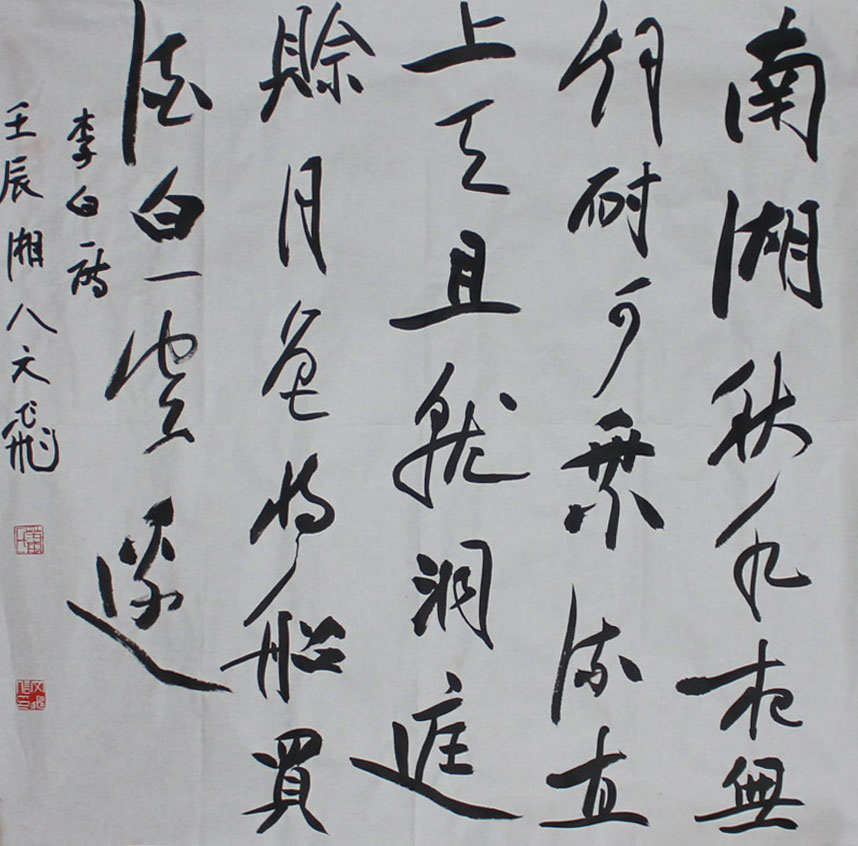 南湖秋水夜無
烟耐可乘流直
上天且就洞庭
賒月色将船買
酒白雲邊
李白詩
壬辰湘人文飛